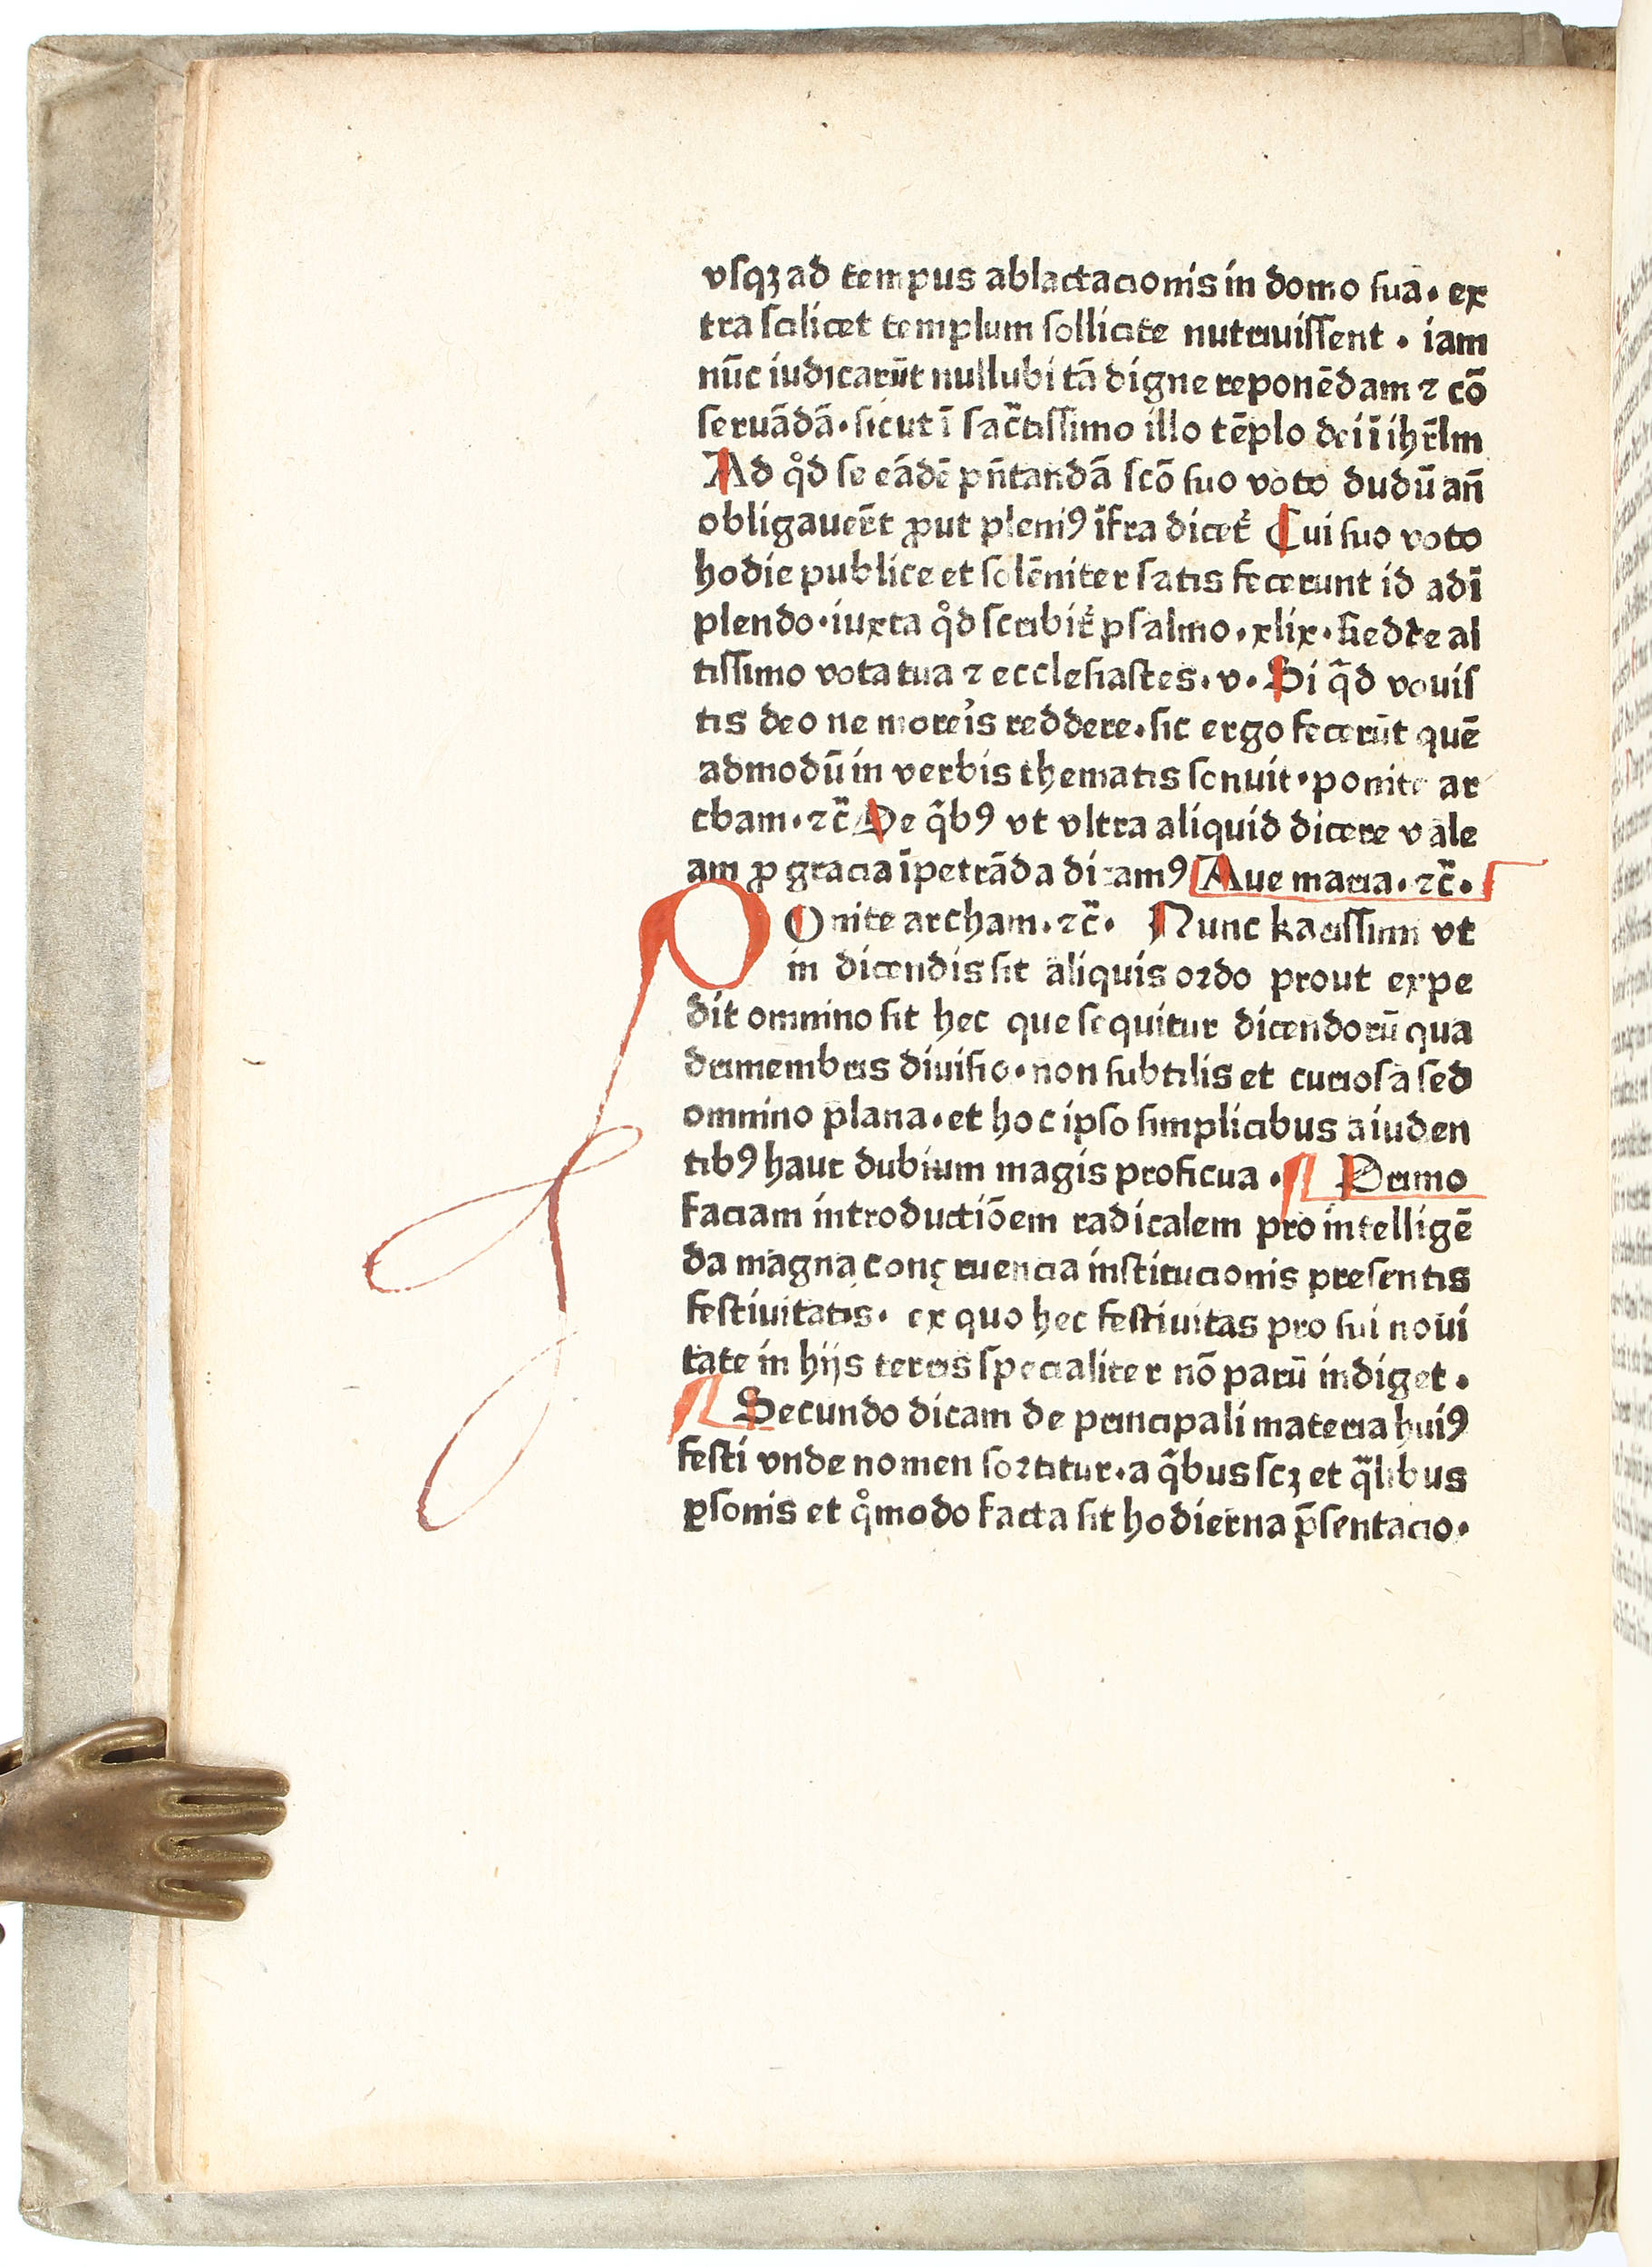 vſqꝫ ad tempus ablactacionis in domo ſua. ex
tra ſcilicet templum ſollicite nutriuiſſent . iam
nūc iudicarūt nullubi tā digne reponēdam ⁊ cō
ſeruādā. ſicut ī ſac̄tiſſimo illo tēplo dei ī ihr̄lm
Ad qͦd ſe eādē pn̄tandā ſcō ſuo voto dudū an̄
obligauer̄t ꝓut pleniꝰ īfra dicet̉ Cui ſuo voto
hodie publice et ſolēniter ſatis fecerunt id adī
plendo. iuxta qͦd ſcribit̉ pſalmo. xlix. Redde al
tiſſimo vota tua ⁊ eccleſiaſtes. v. Si qͥd vouiſ
tis deo ne moreīs reddere. ſic ergo fecerūt quē
admodū in verbis thematis ſonuit. ponite ar
cham. ⁊c̄ De qͥbꝰ vt vltra aliquid dicere vale
am ꝓ gracia īpetrāda dicamꝰ Aue maria. ⁊c̄.
POnite archam. ⁊c̄. Nunc kariſſimi vt
in dicendis ſit aliquis ordo prout expe
dit omnino ſit hec que ſequitur dicendorū qua
drimembris diuiſio. non ſubtilis et curioſa ſed
omnino plana. et hoc ipſo ſimplicibus aiuden
tibꝰ haut dubium magis proficua . ¶ Primo
faciam introductiōem radicalem pro intelligē
da magna congruencia inſtitucionis preſentis
feſtiuitatis. ex quo hec feſtiuitas pro ſui noui
tate in hijs terris ſpecialiter nō parū indiget .
¶ Secundo dicam de principali materia huiꝰ
feſti vnde nomen ſortitur. a qͥbus ſcꝫ et qͣlibus
ꝑſonis et qͦmodo facta ſit hodierna p̄ſentacio.